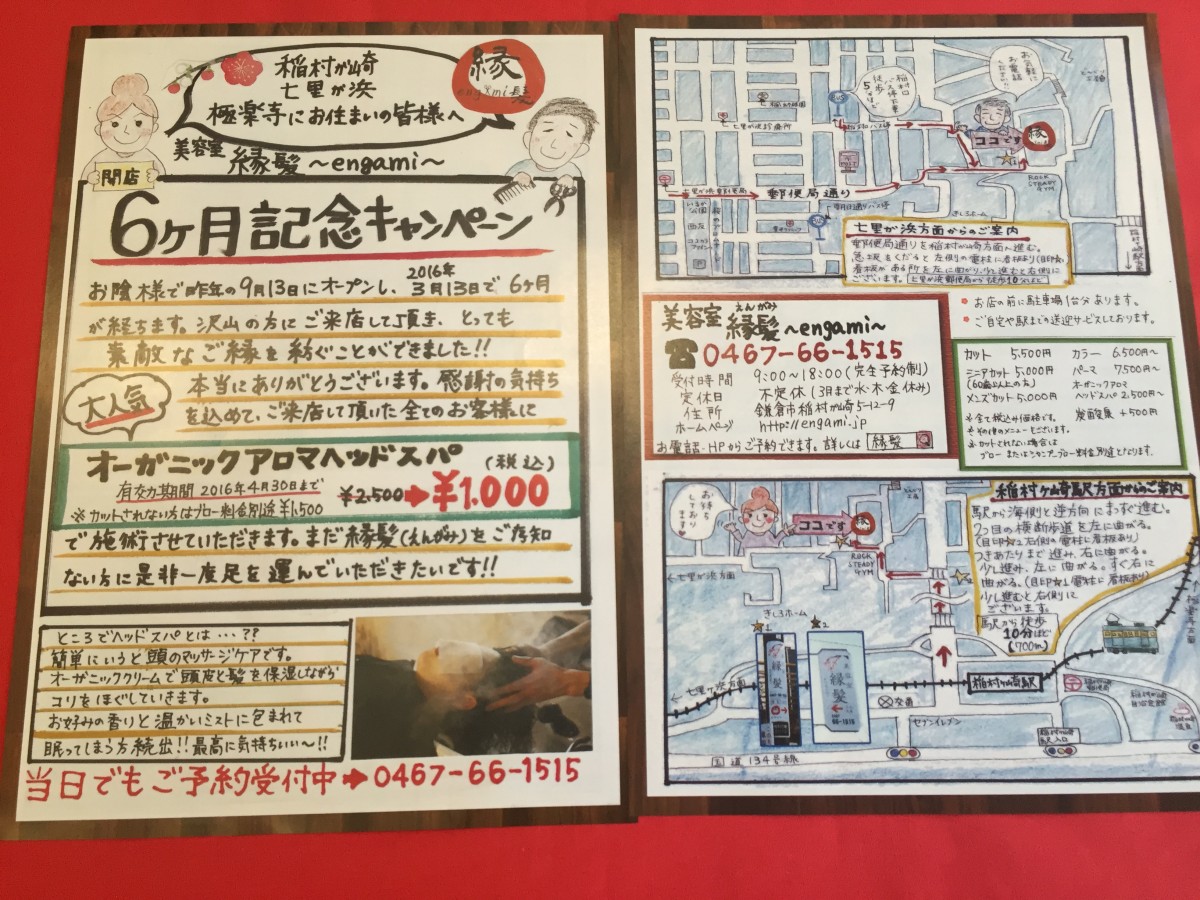 稲村が崎
七里が浜
極楽寺にお住まいの皆様へ
縁
engami髪
美容室 縁髪 〜engami〜
開店
6ヶ月記念キャンペーン
お陰様で昨年の9月13日にオープンし、2016年3月13日で6ヶ月
が経ちます。沢山の方にご来店して頂き、とっても
素敵なご縁を紡ぐことができました!!
大人気
本当にありがとうございます。感謝の気持ち
を込めて、ご来店して頂いた全てのお客様に
オーガニックアロマヘッドスパ (税込)
有効期間 2016年4月30日まで
¥2.500➡¥1.000
※カットされない方はブロー料金別途¥1,500
で施術させていただきます。まだ縁髪(えんがみ)をご存知
ない方に是非一度足を運んでいただきたいです!!
ところでヘッドスパとは…??
簡単にいうと頭のマッサージケアです。
オーガニッククリームで頭皮と髪を保湿しながら
コリをほぐしていきます。
お好みの香りと温かいミストに包まれて
眠ってしまう方続出!!最高に気持ちいい〜!!
当日でもご予約受付中➡0467-66-1515
お気軽に
お電話
ください!
徒歩
5分ほど
七里が浜診療所
ココです
縁
ROCK
STEADY
GYM
七里が浜郵便局
郵便局通り
西友
きしろホーム
七里が浜方面からのご案内
郵便局通りを稲村が崎方面へ進む。
急坂をくだると左側の電柱に看板あり(目印☆)
看板がある所を左に曲がり、少し進むと右側に
ございます。七里が浜郵便局から徒歩10分ほど
お店の前に駐車場1台分あります。
ご自宅や駅までの送迎サービスしております。
美容室 縁髪 えんがみ 〜engami〜
☎0467-66-1515
受付時間 9:00〜18:00(完全予約制)
定休日 不定休(3月まで水木金休み)
住所 鎌倉市稲村が崎5-12-9
ホームページ http://engami.jp
お電話・HPからご予約できます。詳しくは 縁髪
カット 5.500円 カラー 6.500円〜
ミニアカット 5.000円 パーマ 7.500円〜
(60歳以上の方)
オーガニックアロマ
メンズカット 5.000円 ヘッドスパ 2.500円〜
※全て税込み価格です。 炭酸泉 +500円
※その他のメニューもございます。
※カットされない場合は
ブローまたはシャンプーブロー料金別途となります。
稲村ヶ崎駅方面からのご案内
駅から海側と逆方向にまっすぐ進む。
2つ目の横断歩道を左に曲がる。
(目印☆2 右側の電柱に看板あり)
つきあたりまで進み、右に曲がる。
少し進み、左に曲がる。すぐ右に
曲がる。(目印☆1 電柱に看板あり)
少し進むと右側に
ございます。
駅から徒歩
10分ほど
(700m)
お待ち
しており
ます
ココです
縁
ROCK
STEADY
GYM
←七里が浜方面
きしろホーム
☆1
☆2
縁髪
縁髪
66-1515
←七里ヶ浜方面
稲村ヶ崎駅
交番
セブンイレブン
国道134号線